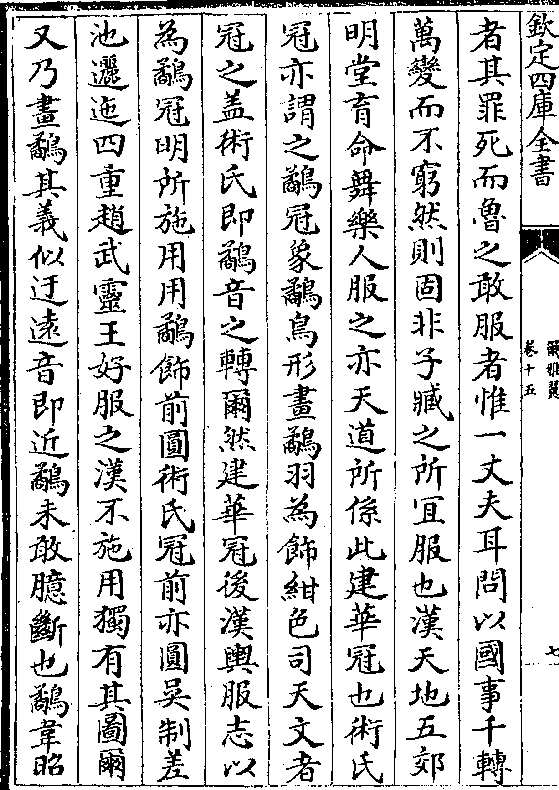 欽定四庫全書
爾雅翼
卷十五
七
者其罪死而魯之敢服者惟一丈夫耳問以國事千轉
萬變而不窮然則固非子臧之所宜服也漢天地五郊
明堂育命舞樂人服之亦天道所係此建華冠也術氏
冠亦謂之鷸冠象鷸鳥形畫鷸羽為飾紺色司天文者
冠之盖術氏即鷸音之轉爾然建華冠後漢輿服志以
為鷸冠明所施用用鷸飾前圓術氏冠前亦圓吳制差
池邐迤四重趙武靈王好服之漢不施用獨有其圖爾
又乃畫鷸其義似迂逺音即近鷸未敢臆斷也鷸韋昭